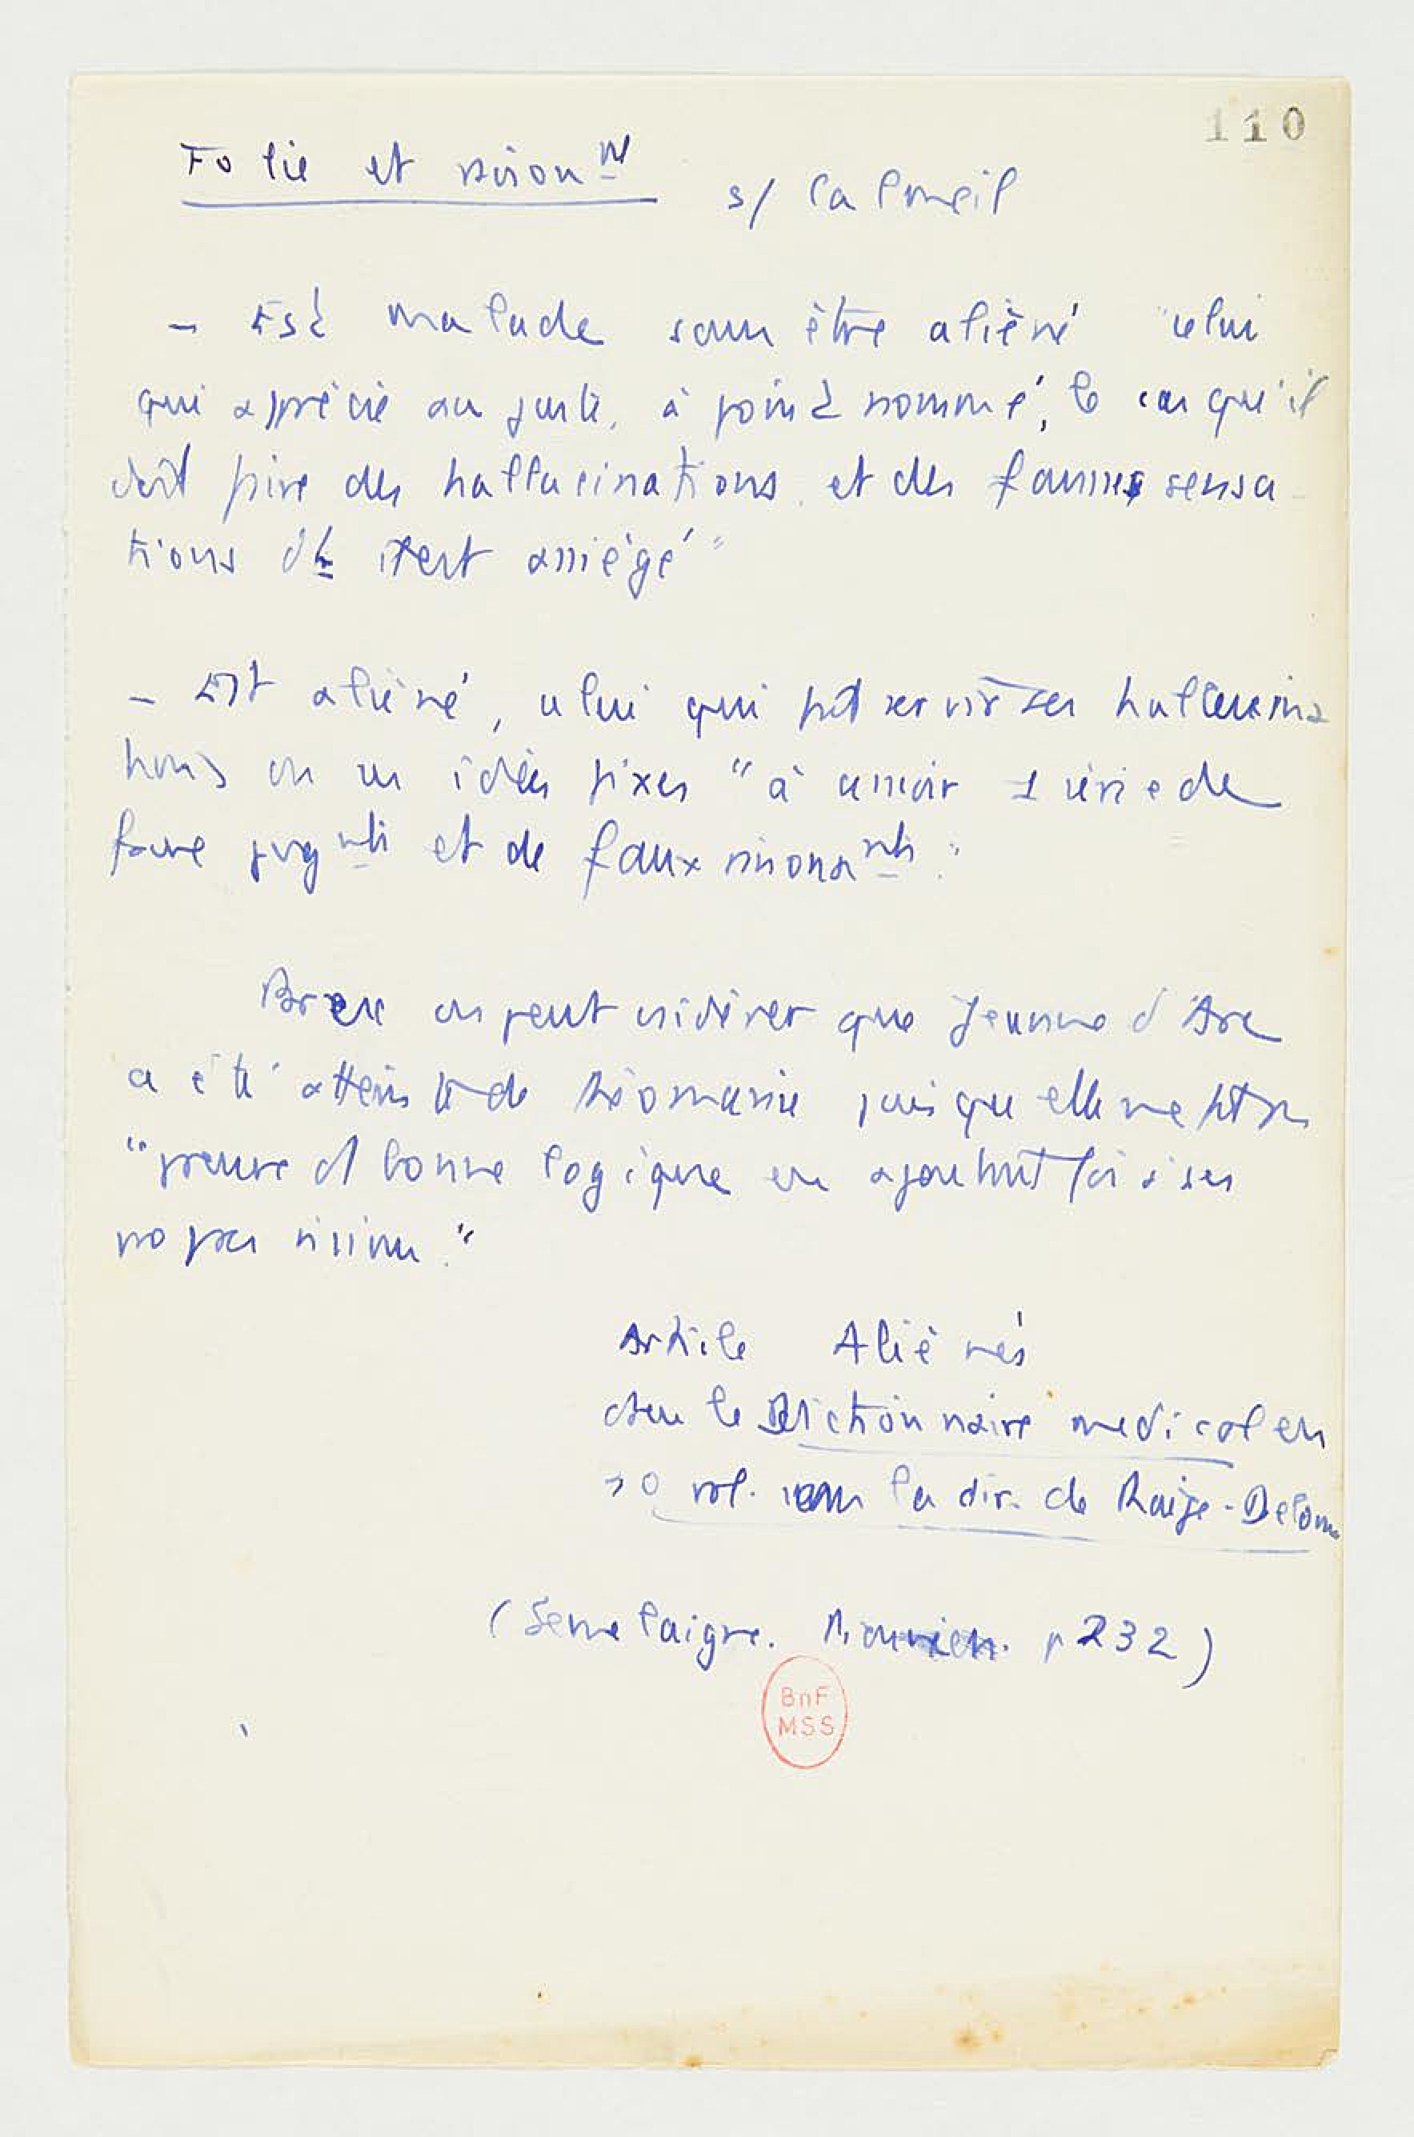 110
Folie et raisonnt s/ Calmeil
– Est malade sans être aliéné "celui
qui apprécie au juste, à point nommé, le cas qu'il
doit faire des hallucinations et des fausses sensa-
tions dt il est assiégé"
– Est aliéné, celui qui fait servir ses hallucina
tions ou ses idées fixes "à asseoir 1 série de
faux jugnts et de faux raisonnts."
on peut considérer que Jeanne d'Arc
a été atteinte de théomanie puisque elle ne fit pas
"preuve d 1 bonne logique en ajoutant foi à ses
propres visions."
Article Aliénés
dans le Dictionnaire médical en
30 vol. sous la dir. de Raige-Delorme
(Semelaigne. p 232)
BnF
MSS